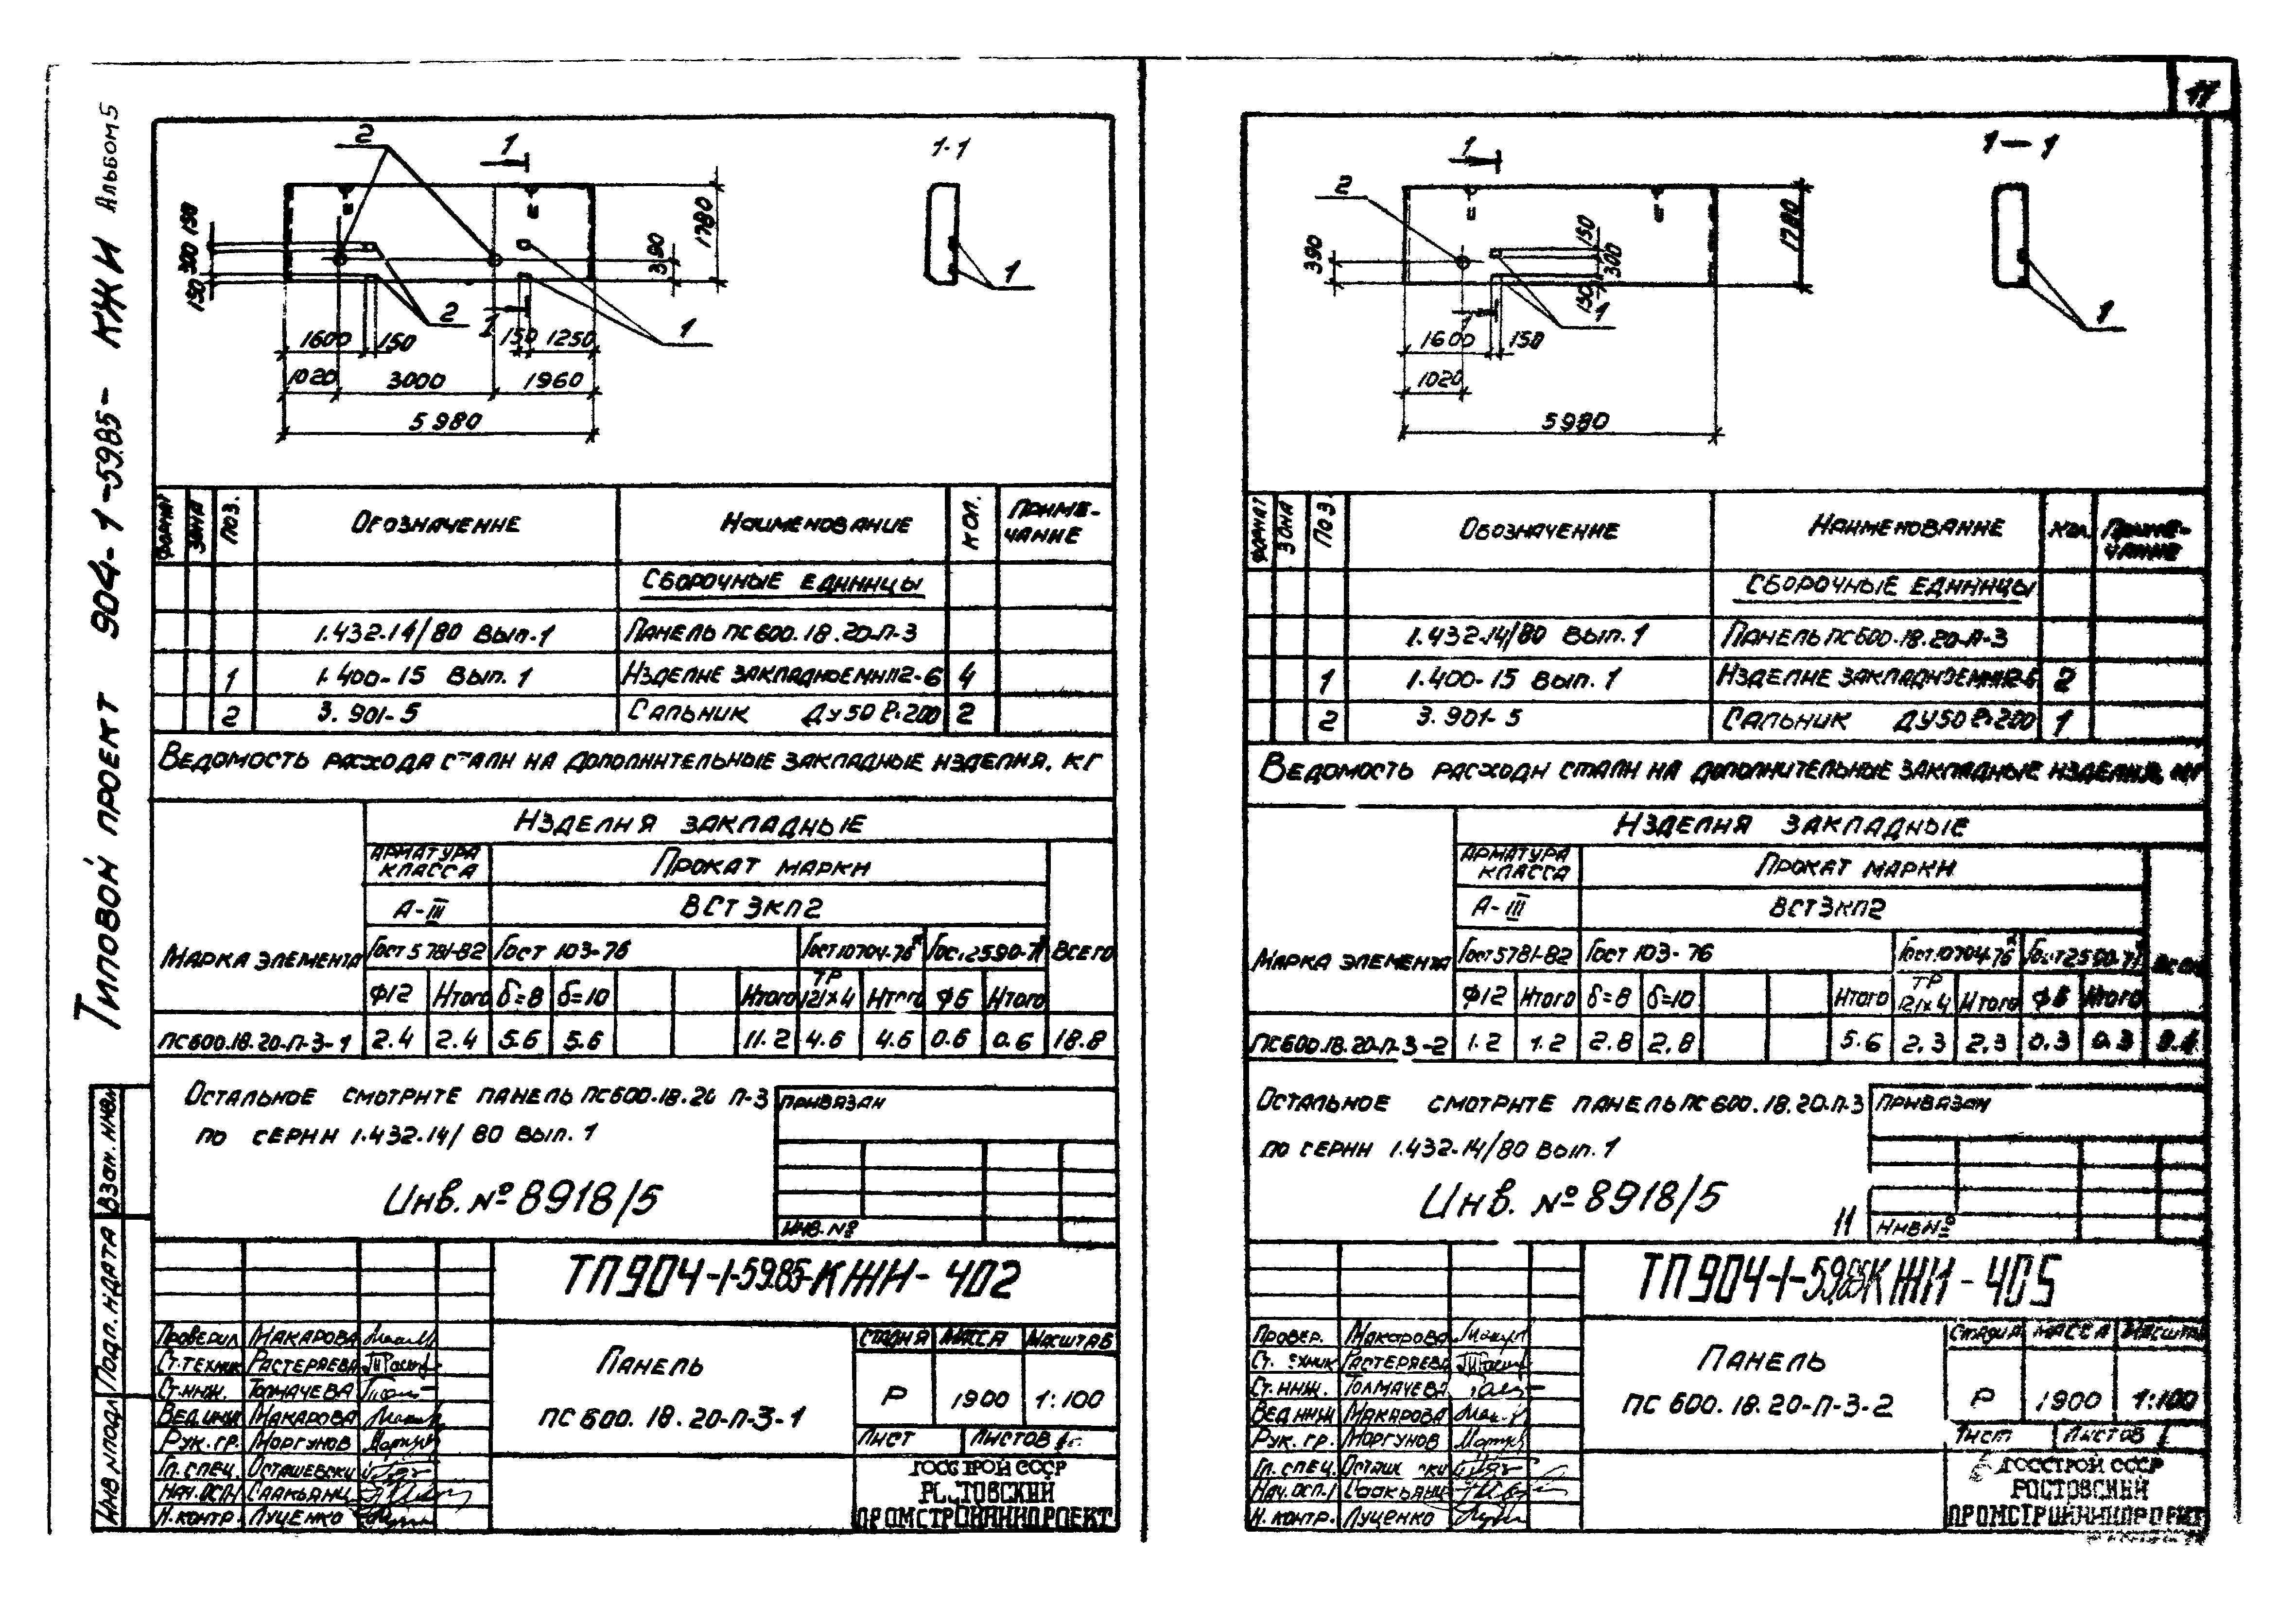 Типовой проект 904-1-59.85- КЖИ Альбом 5
Взам. инв.
Подп. и дата
Инв № подл
2
1
1-1
150
300
150
1780
390
1
2
1
1
1600
150
150
1250
1020
3000
1960
5980
Формат
Зона
Поз.
Обозначение
Наименование
Кол.
Приме-
чание
Сборочные единицы
1.432-14/80 вып.1 Панель ПС600.18.20-П-3
1 1.400-15 вып.1 Изделие закладное МН112-6 4
2 3.901-5 Сальник Ду50 ℓ=200 2
Ведомость расхода стали на дополнительные закладные изделия, кг
Марка элемента
Изделия закладные
Арматура класса
Прокат марки
А-III
ВСт3кп2
Гост 5781-82 Гост 103-76 Гост 10704-76* Гост 2590-71* Всего
Ф12 Итого δ=8 δ=10 Итого ТР 121×4 Итого Ф6 Итого
ПС600.18.20-П-3-1 2.4 2.4 5.6 5.6 11.2 4.6 4.6 0.6 0.6 18.8
Остальное смотрите панель ПС600.18.20 П-3
по серии 1.432.14/80 вып.1
Инв. № 8918/5
Привязан
Инв. №
ТП904-1-59.85-КЖИ-402
Проверил Макарова
Ст.техник Растеряева
Ст.инж. Толмачева
Вед.инж Макарова
Рук.гр. Моргунов
Гл.спец. Осташевски
Нач.ОСП-1 Саакьянц
Н.контр. Луценко
Панель
ПС 600.18.20-П-3-1
Стадия Масса Масштаб
Р 1900 1:100
Лист Листов 1
ГОССТРОЙ СССР
РОСТОВСКИЙ
ПРОМСТРОЙНИИПРОЕКТ
11
1
1-1
2
390
150
300
150
1780
1
1
1
1600
150
1020
5980
Формат
Зона
Поз.
Обозначение
Наименование
Кол.
Приме-
чание
Сборочные единицы
1.432-14/80 вып.1 Панель ПС600.18.20-П-3
1 1.400-15 вып.1 Изделие закладное МН112-6 2
2 3.901-5 Сальник Ду50 ℓ=200 1
Ведомость расходи стали на дополнительные закладные изделия, кг
Марка элемента
Изделия закладные
Арматура класса
Прокат марки
А-III
ВСт3кп2
Гост 5781-82 Гост 103-76 Гост 10704-76* Гост 2590-71* Всего
Ф12 Итого δ=8 δ=10 Итого ТР 121×4 Итого Ф6 Итого
ПС600.18.20-П-3-2 1.2 1.2 2.8 2.8 5.6 2.3 2.3 0.3 0.3 9.4
Остальное смотрите панель ПС600.18.20-П-3
по серии 1.432-14/80 вып.1
Инв. № 8918/5
11
Привязан
Инв №
ТП904-1-59.85КЖИ-405
Провер. Макарова
Ст. техник Растеряева
Ст.инж. Толмачева
Вед.инж Макарова
Рук.гр. Моргунов
Гл.спец. Осташевски
Нач.ОСП-1 Саакьянц
Н.контр. Луценко
Панель
ПС 600.18.20-П-3-2
Стадия Масса Масштаб
Р 1900 1:100
Лист Листов 1
ГОССТРОЙ СССР
РОСТОВСКИЙ
ПРОМСТРОЙНИИПРОЕКТ